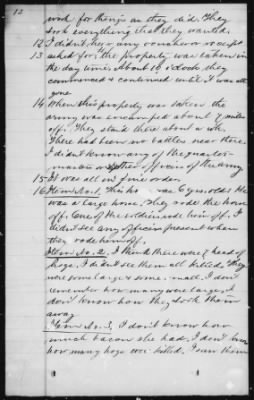 12
word for things as they did. They
took everything that they wanted.
12 I didn't hear any voucher or receipt
13 asked for; the property was taken in
the day time, about 10 o'clock they
commenced & continued until it was all
gone
14 When this property was taken the
army was encamped about miles
off. They staid there about a wk.
There had been no battles near there.
I didn't know any of the quarter-
masters or other officers of the army
15 It was all in fine order.
16 Item No. 1. This ho was 6 yrs. old. He
was a large horse. They rode the horse
off. One of the soldiers rode him off. I
didn't see any officers present when
they rode him off.
Item No. 2. I think there were head of
hogs. I didn't see them all killed. They
were some large & some small. I don't
remember how many were large, I
don't know how they took them
away
Item No. 3, I don't know how
much bacon she had, I don't know
how many hogs were killed. I saw them